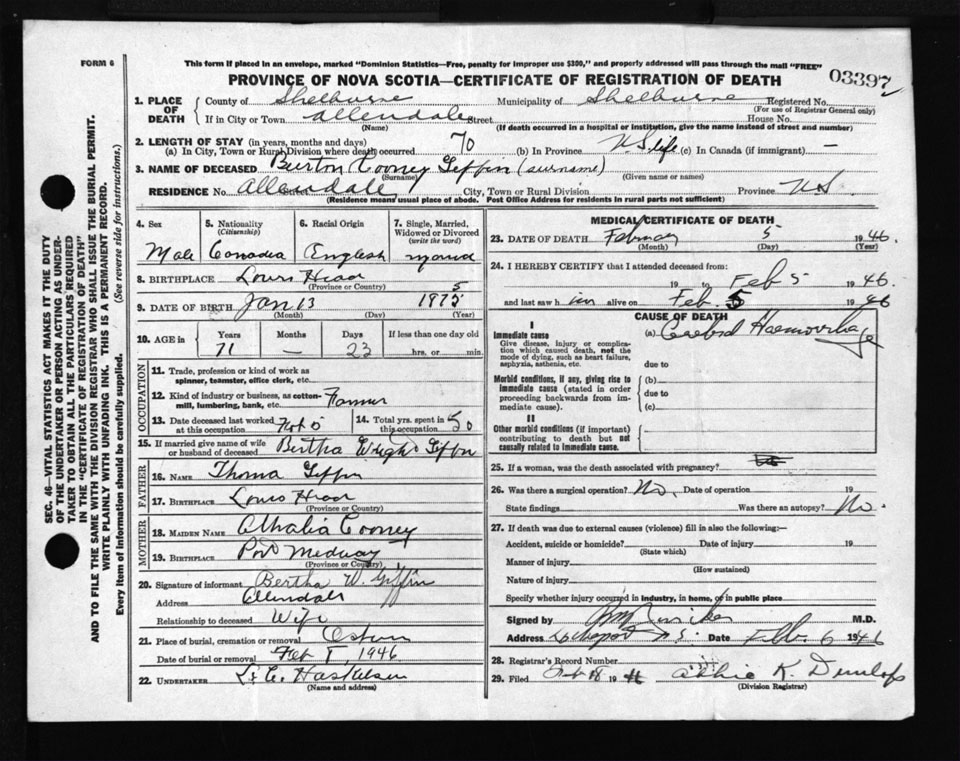 FORM 6
This form if placed in an envelope, marked "Dominion Statistics—Free, penalty for improper use $300," and properly addressed will pass through the mail "FREE"
PROVINCE OF NOVA SCOTIA—CERTIFICATE OF REGISTRATION OF DEATH
03397
1. PLACE OF DEATH
County of Shelburne Municipality of Shelburne Registered No.
(For use of Registrar General only)
If in City or Town Allendale Street House No.
(Name) (If death occurred in a hospital or institution, give the name instead of street and number)
2. LENGTH OF STAY (in years, months and days)
(a) In City, Town or Rural Division where death occurred 70 (b) In Province N.S life (c) In Canada (if immigrant) —
3. NAME OF DECEASED Burton Cooney Giffin (surname)
(Surname) (Given name or names)
RESIDENCE No. Allendale Street City, Town or Rural Division Province N.S
(Residence means usual place of abode. Post Office Address for residents in rural parts not sufficient)
4. Sex
Male
5. Nationality (Citizenship)
Canada
6. Racial Origin
English
7. Single, Married, Widowed or Divorced (write the word)
married
8. BIRTHPLACE Louis Head
(Province or Country)
9. DATE OF BIRTH Jan 13 1875
(Month) (Day) (Year)
10. AGE in Years Months Days If less than one day old
71 — 23 hrs. or min.
OCCUPATION
11. Trade, profession or kind of work as spinner, teamster, office clerk, etc.
12. Kind of industry or business, as cotton-mill, lumbering, bank, etc. Farmer
13. Date deceased last worked at this occupation
14. Total yrs. spent in this occupation 50
15. If married give name of wife or husband of deceased Bertha Wright Giffin
FATHER
16. NAME Thomas Giffin
17. BIRTHPLACE Louis Head
(Province or Country)
MOTHER
18. MAIDEN NAME Athalia Cooney
19. BIRTHPLACE Port Medway
(Province or Country)
20. Signature of informant Bertha W. Giffin
Address Allendale
Relationship to deceased Wife
21. Place of burial, cremation or removal
Date of burial or removal Feb 1946
22. UNDERTAKER
(Name and address)
MEDICAL CERTIFICATE OF DEATH
23. DATE OF DEATH February 5 1946.
(Month) (Day) (Year)
24. I HEREBY CERTIFY that I attended deceased from:
19 to Feb 5 1946
and last saw him alive on Feb. 5 1946
CAUSE OF DEATH
I
Immediate cause
Give disease, injury or complication which caused death, not the mode of dying, such as heart failure, asphyxia, asthenia, etc.
(a) Cerebral Haemorrhage
due to
Morbid conditions, if any, giving rise to immediate cause (stated in order proceeding backwards from immediate cause).
(b)
due to
(c)
II
Other morbid conditions (if important) contributing to death but not causally related to immediate cause.
25. If a woman, was the death associated with pregnancy?
26. Was there a surgical operation? No. Date of operation 19
State findings Was there an autopsy? No.
27. If death was due to external causes (violence) fill in also the following:—
Accident, suicide or homicide? Date of injury 19
(State which)
Manner of injury
(How sustained)
Nature of injury
Specify whether injury occurred in industry, in home, or in public place
Signed by M.D.
Address Lockeport N S. Date Feb. 6 1946
28. Registrar's Record Number
29. Filed Feb 18 1946 Abbie K. Dunlop
(Division Registrar)
SEC. 46—VITAL STATISTICS ACT MAKES IT THE DUTY
OF THE UNDERTAKER OR PERSON ACTING AS UNDER-
TAKER TO OBTAIN ALL THE PARTICULARS REQUIRED
IN THE "CERTIFICATE OF REGISTRATION OF DEATH"
AND TO FILE THE SAME WITH THE DIVISION REGISTRAR WHO SHALL ISSUE THE BURIAL PERMIT.
WRITE PLAINLY WITH UNFADING INK. THIS IS A PERMANENT RECORD.
Every item of information should be carefully supplied. (See reverse side for instructions.)